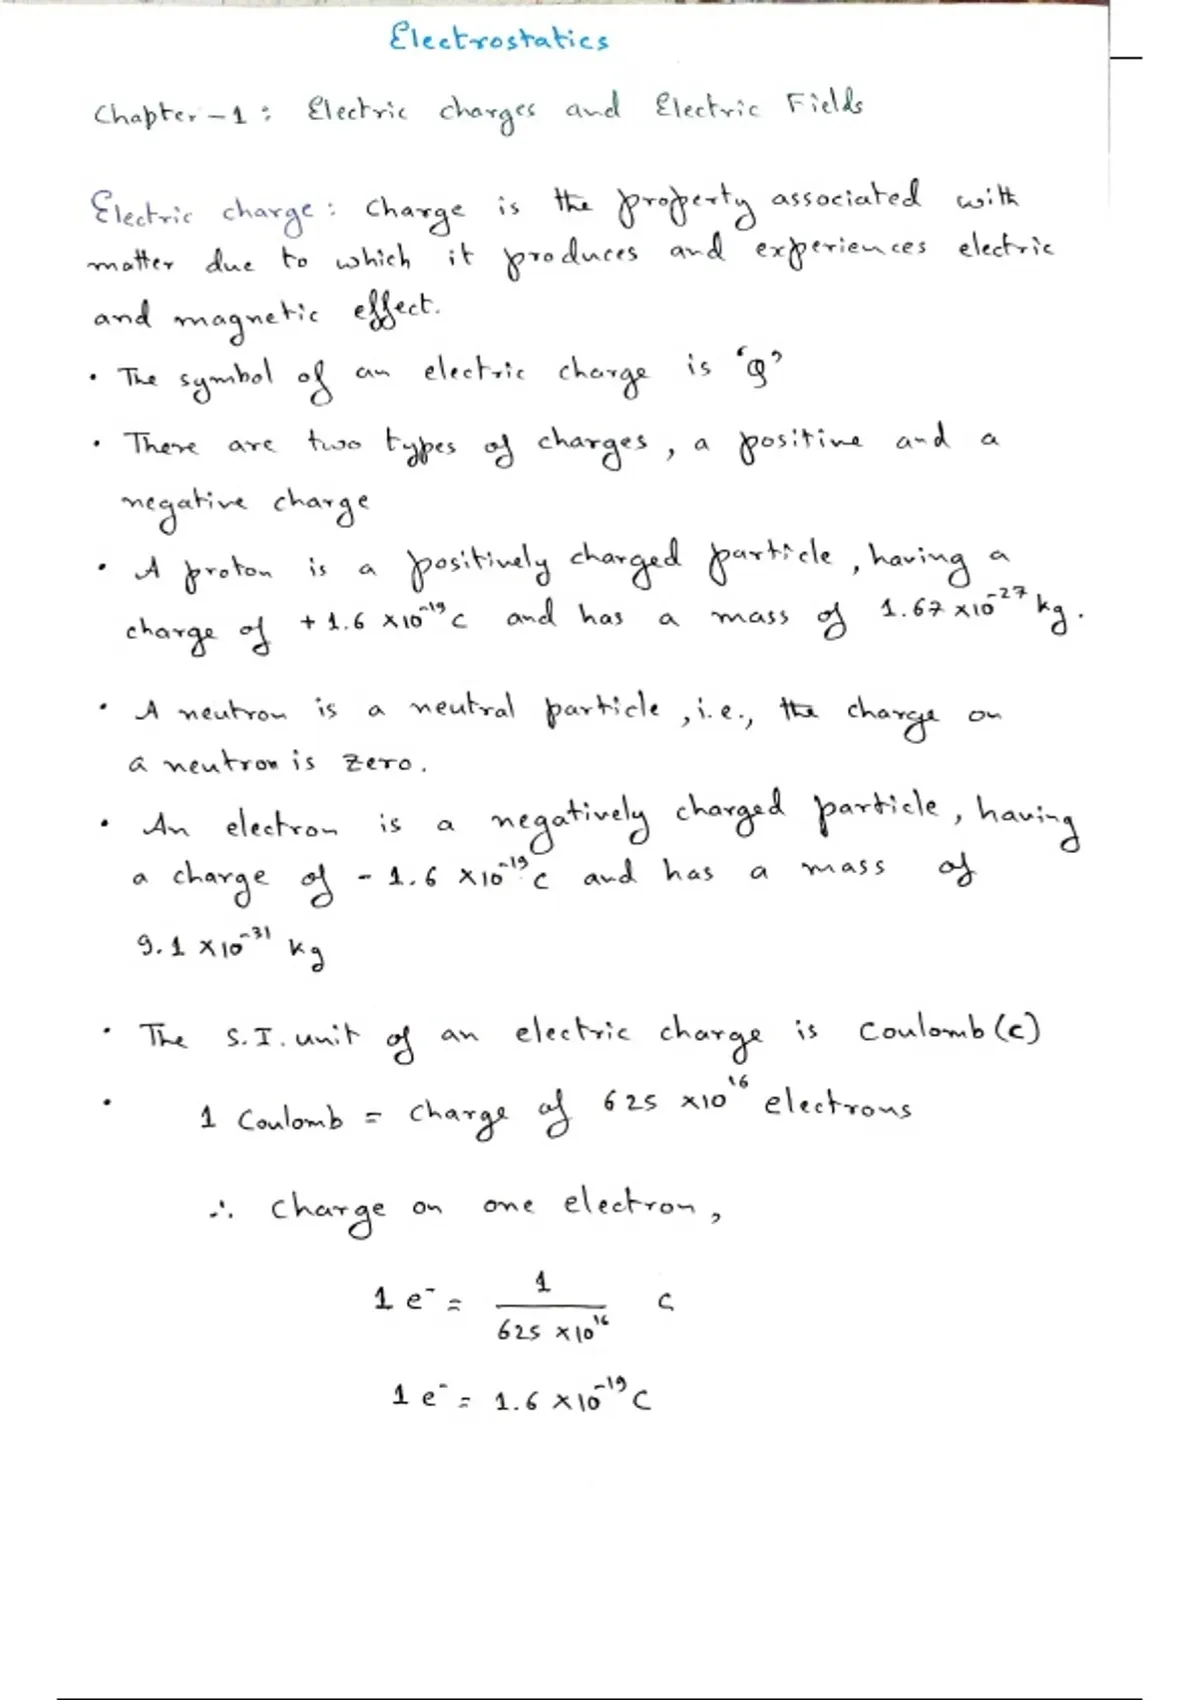 Electrostatics
Chapter-1: Electric charges and Electric Fields
Electric charge: Charge is the property associated with
matter due to which it produces and experiences electric
and magnetic effect.
• The symbol of an electric charge is 'Q'
• There are two types of charges, a positive and a
negative charge
• A proton is a positively charged particle, having a
charge of +1.6 ×10⁻¹⁹ C and has a mass of 1.67 ×10⁻²⁷ kg.
• A neutron is a neutral particle, i.e., the charge on
a neutron is zero.
• An electron is a negatively charged particle, having
a charge of -1.6 ×10⁻¹⁹ C and has a mass of
9.1 ×10⁻³¹ kg
• The S.I. unit of an electric charge is Coulomb (C)
• 1 Coulomb = charge of 625 ×10¹⁶ electrons
∴ Charge on one electron,
1 e⁻ = 1 / 625 ×10¹⁶ C
1 e⁻ = 1.6 ×10⁻¹⁹ C